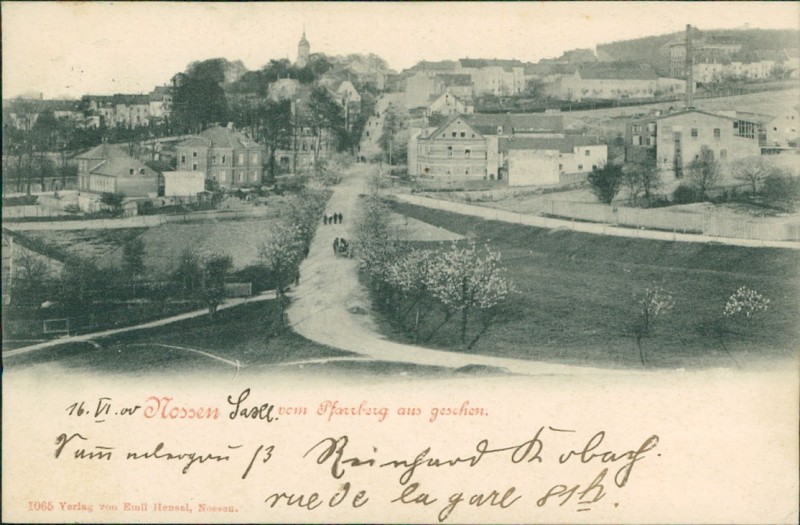 16. VI. 00 Nossen Sachs. vom Pfarrberg aus gesehen.
Reinhard Kobach.
rue de la gare 81b.
1065 Verlag von Emil Hensel, Nossen.